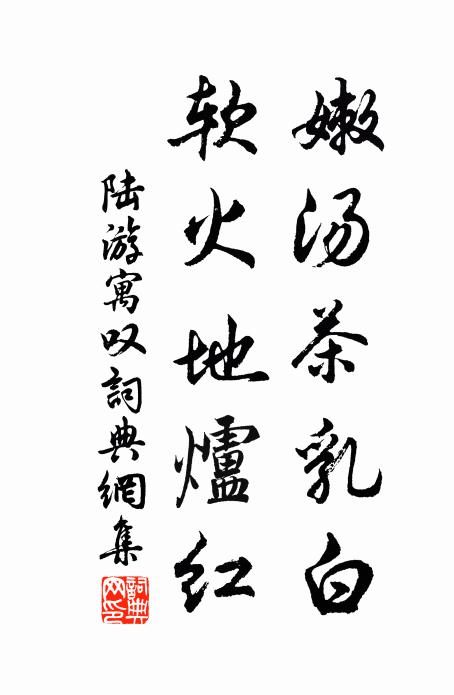 嫩汤茶乳白
软火地爐红
陆游寓叹詞典網集
詞典网印